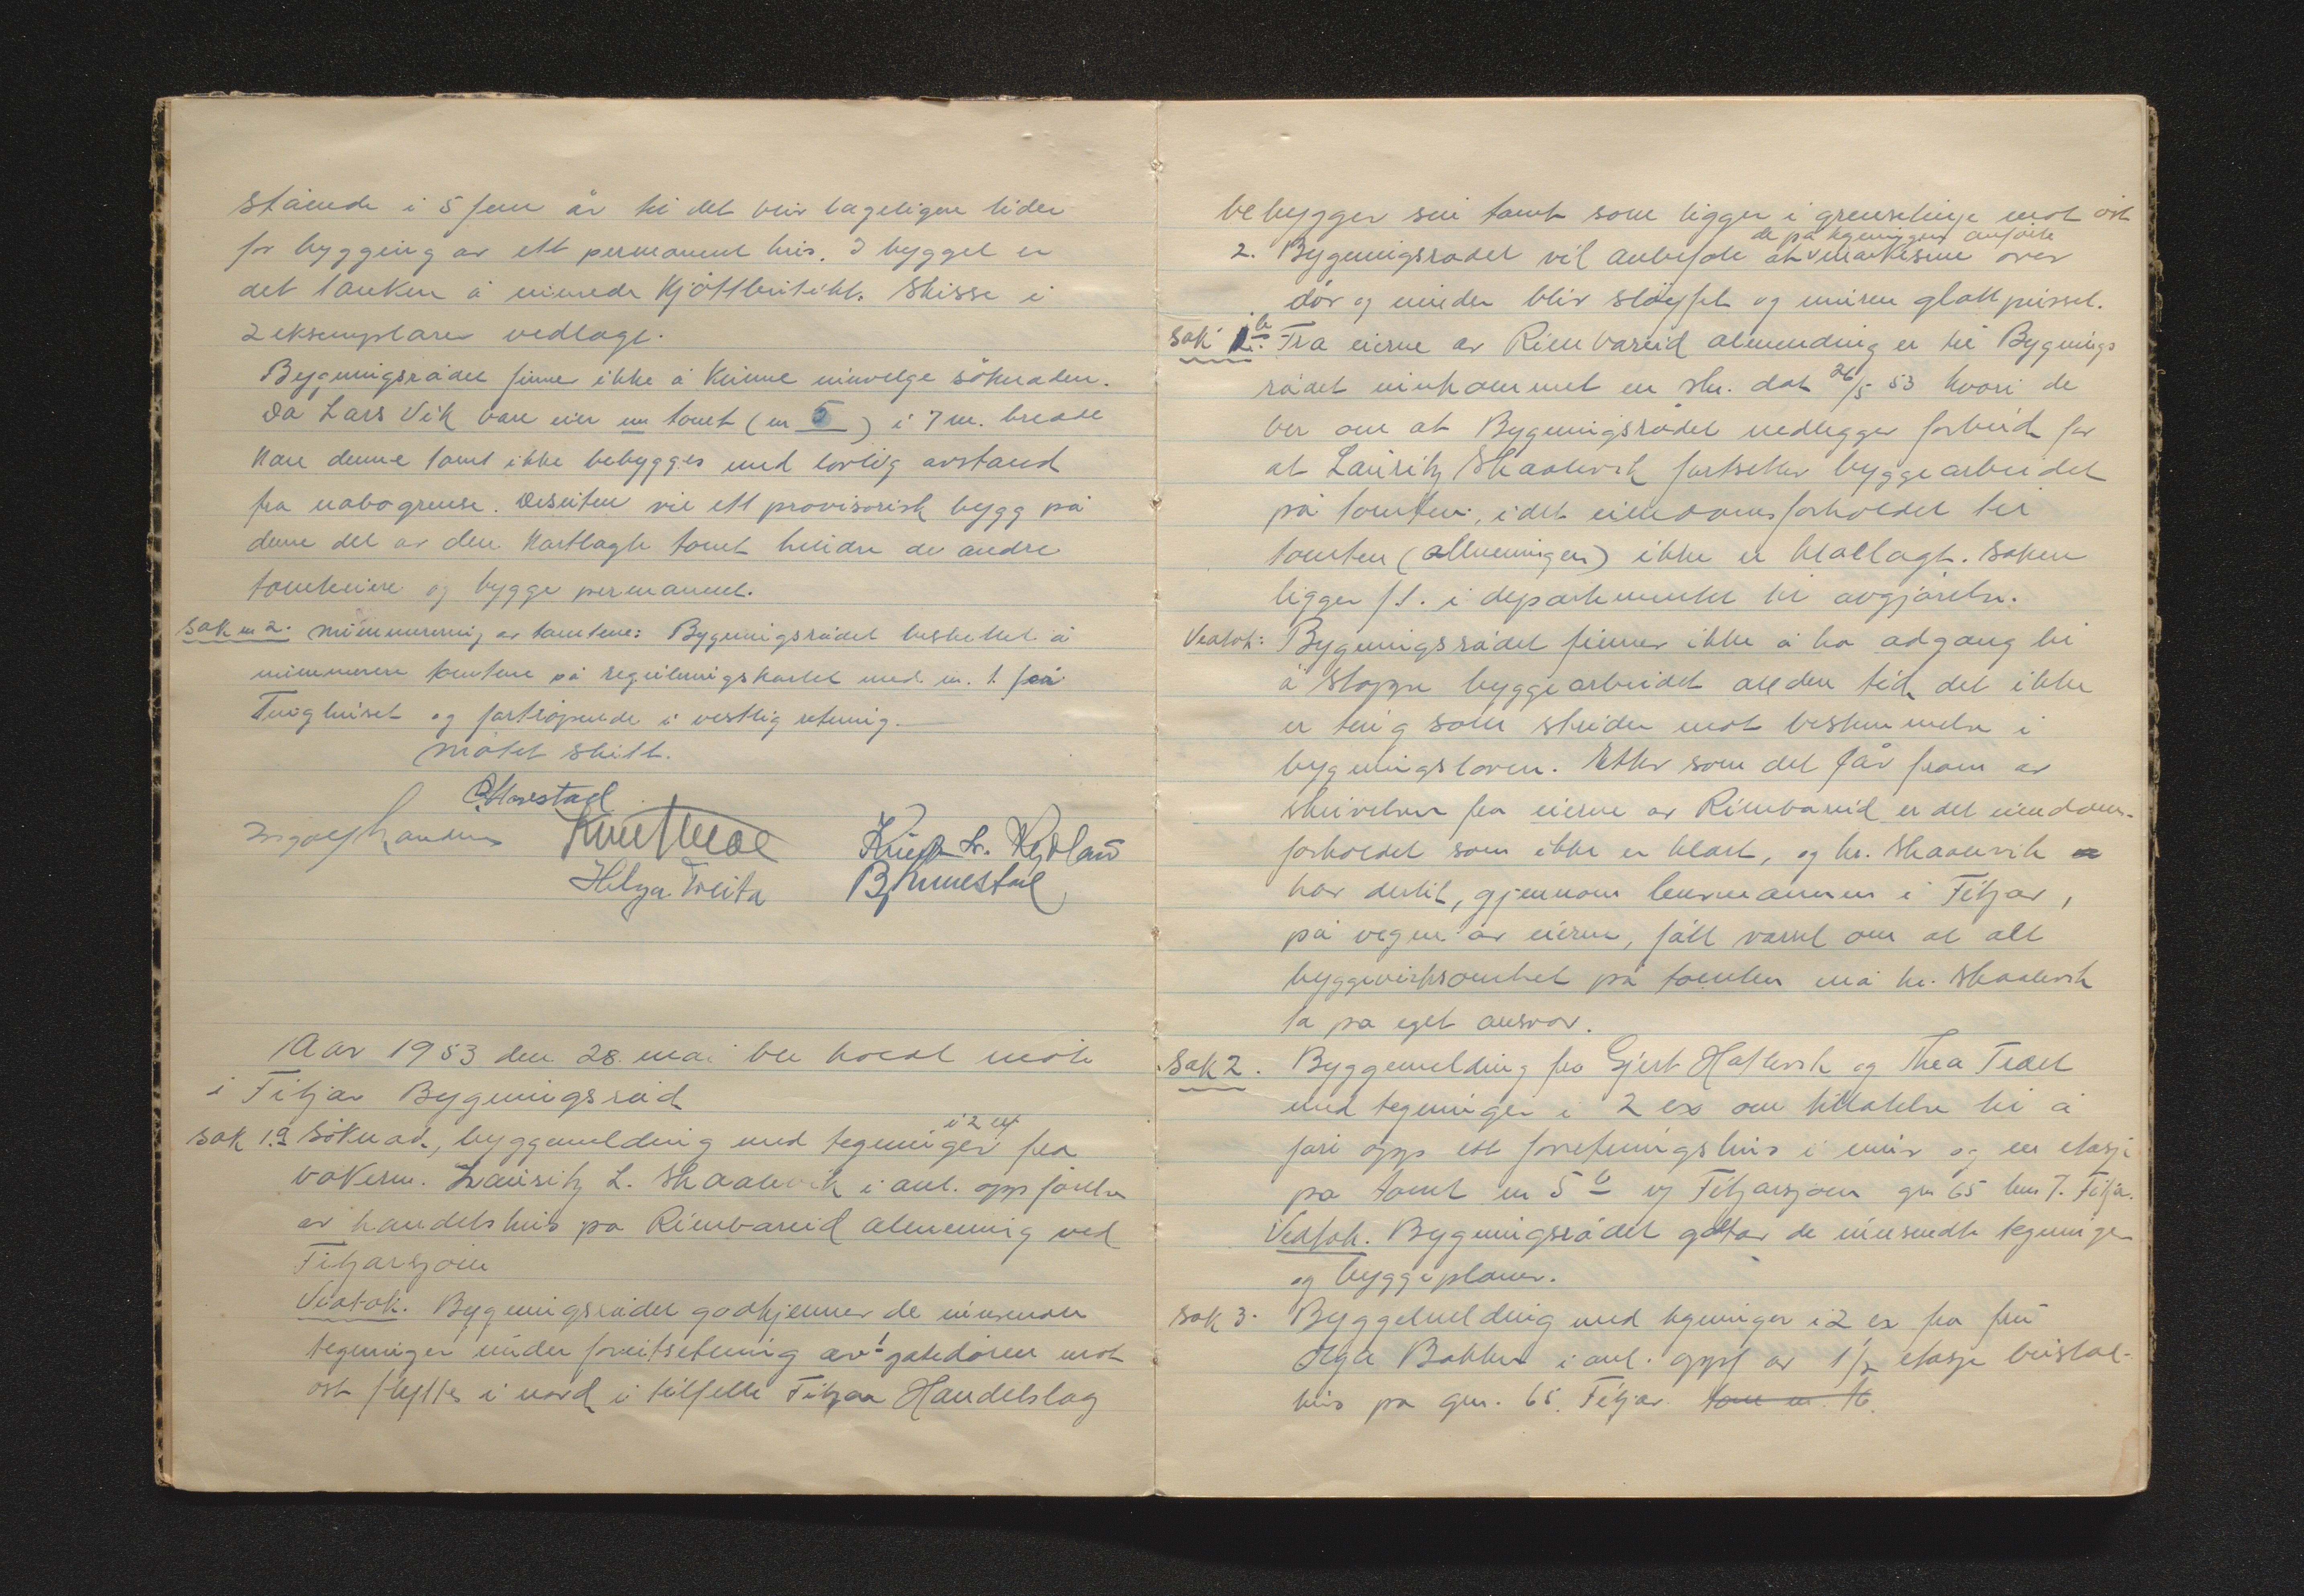 stående i 5 fem år til det blir lageligere tider
for bygging av ett permanent hus. I bygget er
det tanken å innrede kjøttbutikk. Skisse i
2 eksemplarer vedlagt.
Bygningsrådet finner ikke å kunne innvilge søknaden.
Da Lars Vik bare eier en tomt (nr 5) i 7 m. bredde
kan denne tomt ikke bebygges med lovlig avstand
fra nabogrense. Desuten vil ett provisorisk bygg på
denne del av den kartlagte tomt hindre de andre
tomteeiere og bygge permanent.
Sak nr 2. Nummerering av tomtene: Bygningsrådet besluttet å
nummerere tomtene på reguleringskartet med nr. 1 fra
Tinghuset og fortløpende i vestlig retning.
Møtet slutt.
Ingolf Sandvik Knut Moe Knut L. Rydland
Helge Tveita B. Rimestad
Aar 1953 den 28. mai ble holdt møte
i Fitjar Bygningsråd
Sak 1.a Søknad, byggemelding med tegninger i 2 ex fra
bakerm. Lauritz L. Skaalevik i anl. oppførelse
av handelshus på Rimbareid almenning ved
Fitjarsjøen
Vedtak. Bygningsrådet godkjenner de innsendte
tegninger under forutsetning av at gatedøren mot
øst flyttes i nord i tilfelle Fitjar Handelslag
bebygger sin tomt som ligger i grenselinje mot øst
2. Bygningsrådet vil anbefale at de på tegningen anførte markisene over
dør og vinduer blir sløyfet og muren glatt pusset.
Sak 1b. Fra eierne av Rimbareid almending er til Bygnings
rådet innkommet en skr. dat 26/5 53 hvori de
ber om at Bygningsrådet nedlegger forbud for
at Lauritz Skaalevik fortsetter byggearbeidet
på tomten, idet eiendomsforholdet til
tomten (allmenningen) ikke er klarlagt. Saken
ligger f.t. i departementet til avgjørelse.
Vedtak: Bygningsrådet finner ikke å ha adgang til
å stoppe byggearbeidet all den tid det ikke
er ting som strider mot bestemmelse i
bygningsloven. Etter som det går fram av
skrivelsen fra eierne av Rimbareid er det eiendoms-
forholdet som ikke er klart, og hr. Skaalevik
har dertil, gjennom lensmannen i Fitjar,
på vegne av eierne, fått varsel om at all
byggevirksomhet på tomten må hr. Skaalevik
ta på eget ansvar.
Sak 2. Byggemelding fra Gjert Hatlevik og Thea Træet
med tegninger i 2 ex om tillatelse til å
føre opp ett forretningshus i mur og en etasje
på tomt nr 5 b v/ Fitjarsjøen gnr 65 bnr 7. Fitjar.
Vedtak. Bygningsrådet godtar de innsendte tegninger
og byggeplaner.
Sak 3. Byggemelding med tegninger i 2 ex fra fru
Olga Bakken i anl. oppf av 1 1/2 etasje bustad-
hus på gnr. 65. Fitjar.